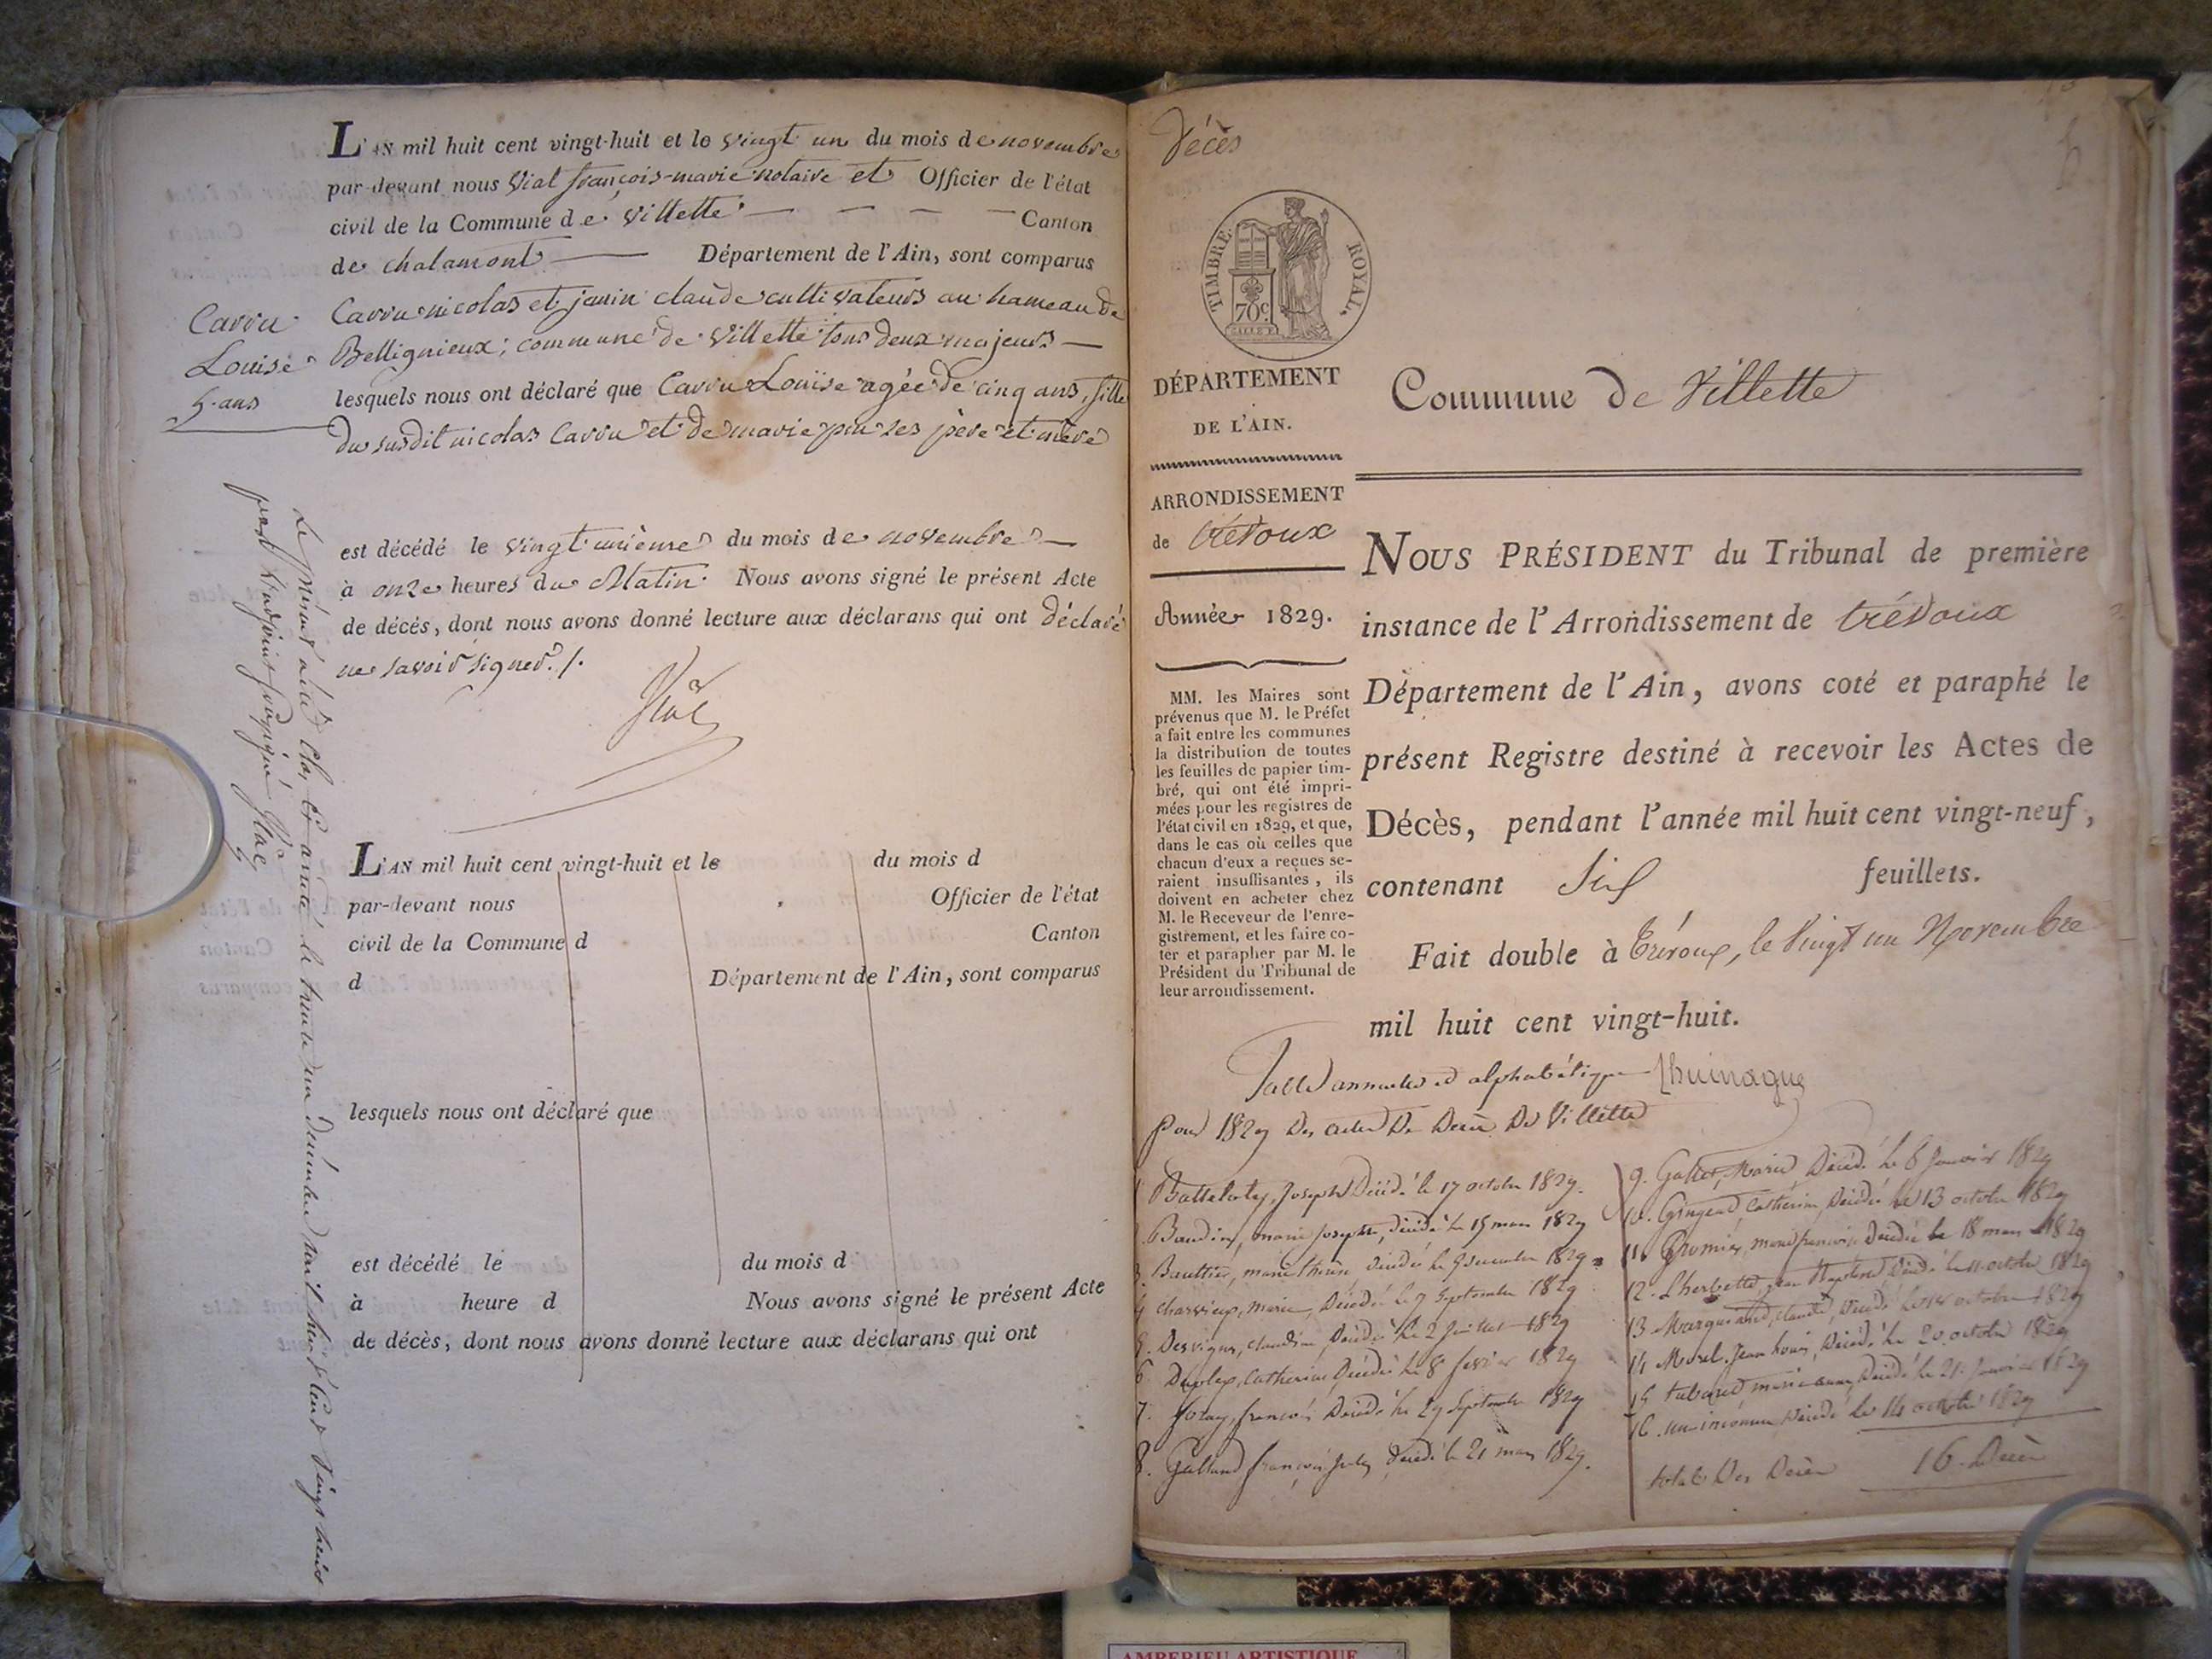 L'AN mil huit cent vingt-huit et le vingt un du mois de novembre
par-devant nous Vial françois-marie notaire et Officier de l'état
civil de la Commune de Villette Canton
de chalamont Département de l'Ain, sont comparus
Carru
Louise
5. ans
Carru nicolas et janin claude cultivateurs au hameau de
Bellignieux; commune de Villette tous deux majeurs
lesquels nous ont déclaré que Carru Louise agée de cinq ans, fille
du susdit nicolas Carru et de marie ses père et mère
est décédé le vingt unième du mois de novembre
à onze heures du Matin. Nous avons signé le présent Acte
de décés, dont nous avons donné lecture aux déclarans qui ont déclaré
ne savoir signer ./.
Le présent a été clos et arrêté le trente un décembre mil huit cent vingt huit
par l'adjoint soussigné
L'AN mil huit cent vingt-huit et le du mois d
par-devant nous Officier de l'état
civil de la Commune d Canton
d Département de l'Ain, sont comparus
lesquels nous ont déclaré que
est décédé le du mois d
à heure d Nous avons signé le présent Acte
de décès, dont nous avons donné lecture aux déclarans qui ont
Décès
TIMBRE ROYAL.
70c.
DÉPARTEMENT
DE L'AIN.
ARRONDISSEMENT
de trévoux
Année 1829.
MM. les Maires sont
prévenus que M. le Préfet
a fait entre les communes
la distribution de toutes
les feuilles de papier tim-
bré, qui ont été impri-
mées pour les registres de
l'état civil en 1829, et que,
dans le cas où celles que
chacun d'eux a reçues se-
raient insuffisantes, ils
doivent en acheter chez
M. le Receveur de l'enre-
gistrement, et les faire co-
ter et parapher par M. le
Président du Tribunal de
leur arrondissement.
Commune de Villette
NOUS PRÉSIDENT du Tribunal de première
instance de l'Arrondissement de trévoux
Département de l'Ain, avons coté et paraphé le
présent Registre destiné à recevoir les Actes de
Décès, pendant l'année mil huit cent vingt-neuf,
contenant Six feuillets.
Fait double à Trévoux, le Vingt un Novembre
mil huit cent vingt-huit.
Table annuelle et alphabétique
Pour 1829 Des actes De Décès De Villette
Joseph Décédé le 17 octobre 1829.
Baudin, marie josephte, décédée le 15 mars 1829
3. Bauttier, marie décédée le 9 1829
4 Charvieux, marie, Décédée le 7 Septembre 1829
5. Desvignes, claudine, Décédée le 2 Juillet 1829
6 Duplex, Catherine Décédée le 8 fevrier 1829
7. françois Décédé le 29 Septembre 1829
8. Galland françois Décédé le 21 mars 1829.
9. Marie Décédée le 8 Janvier 1829
10. Catherine, Décédée le 13 octobre 1829
11. marie françoise Décédée le 18 mars 1829
12. Lherbette, jean Baptiste, Décédé le 11 octobre 1829
13 claude, Décédé le octobre 1829
14 Morel. Jean Louis, Décédé le 20 octobre 1829
15 marie anne, Décédée le 21 Janvier 1829
16. un inconnu Décédé le 14 octobre 1829
total Des Décès 16. Décès
AMBERIEU ARTISTIQUE